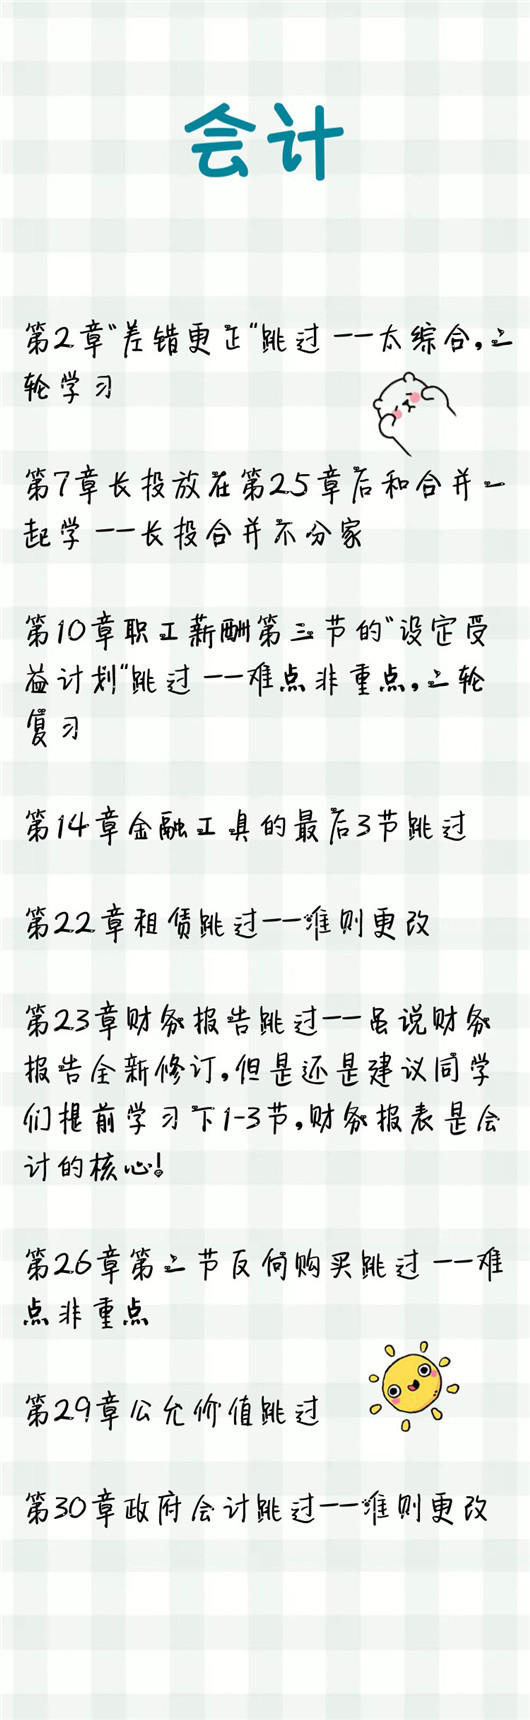 会计
第2章“差错更正”跳过——太综合,二
轮学习
第7章长投放在第25章后和合并一
起学——长投合并不分家
第10章职工薪酬第三节的“设定受
益计划”跳过——难点非重点,二轮
复习
第14章金融工具的最后3节跳过
第22章租赁跳过——准则更改
第23章财务报告跳过——虽说财务
报告全新修订,但是还是建议同学
们提前学习下1-3节,财务报表是会
计的核心!
第26章第二节反向购买跳过——难
点非重点
第29章公允价值跳过
第30章政府会计跳过——准则更改